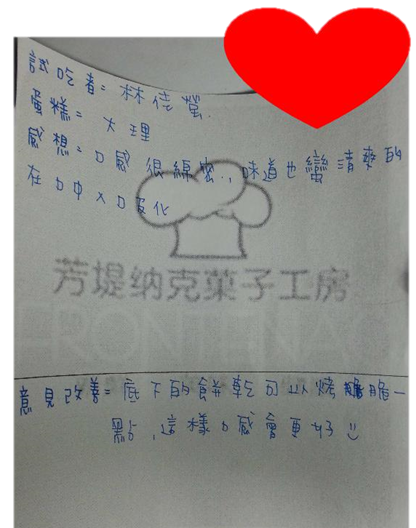 試吃者=林佳螢.
蛋糕=大理
感想=口感很綿密.,味道也蠻清爽的
在口中入口及化
芳堤纳克菓子工房
FRONTINA
意見改善=底下的餅乾可以烤脆脆一
點,這樣口感會更好